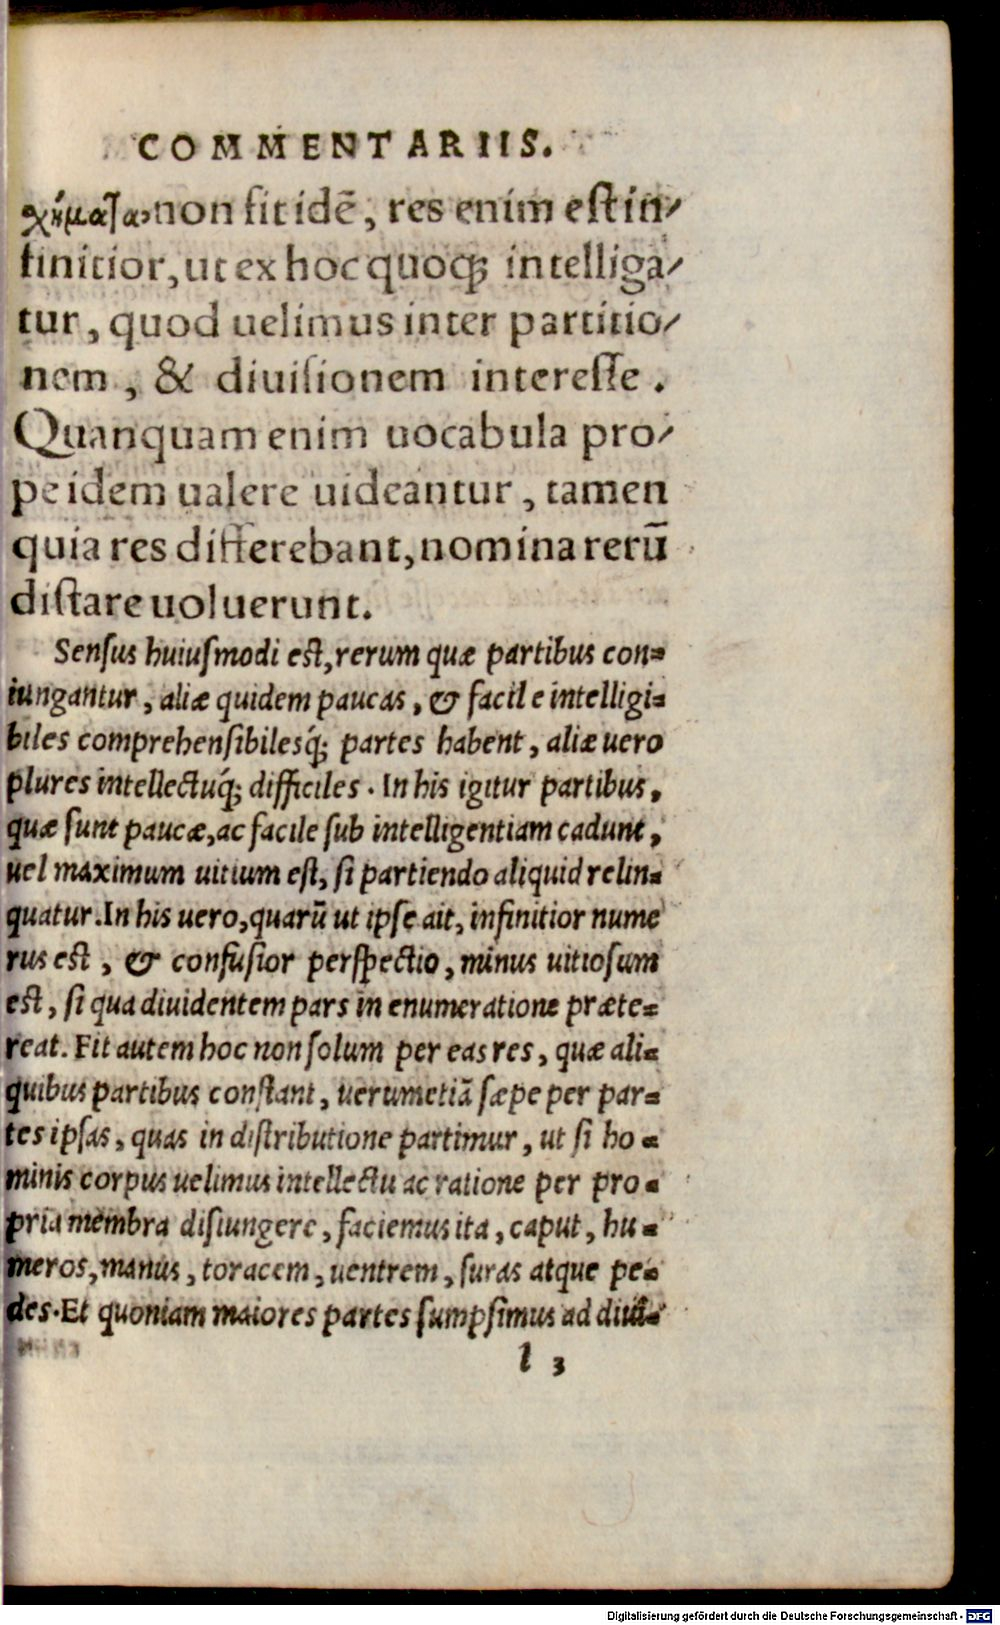 COMMENTARIIS.
χήματα, non sit idē, res enim est in/
finitior, ut ex hoc quoq; intelliga/
tur, quod uelimus inter partitio/
nem, & diuisionem interesse.
Quanquam enim uocabula pro/
pe idem ualere uideantur, tamen
quia res differebant, nomina rerū
distare uoluerunt.
Sensus huiusmodi est, rerum quæ partibus con-
iungantur, aliæ quidem paucas, & facile intelligi-
biles comprehensibilesq́; partes habent, aliæ uero
plures intellectuq́; difficiles. In his igitur partibus,
quæ sunt paucæ, ac facile sub intelligentiam cadunt,
uel maximum uitium est, si partiendo aliquid relin-
quatur. In his uero, quarū ut ipse ait, infinitior nume
rus est, & confusior perspectio, minus uitiosum
est, si qua diuidentem pars in enumeratione præte-
reat. Fit autem hoc non solum per eas res, quæ ali-
quibus partibus constant, uerumetiā sæpe per par-
tes ipsas, quas in distributione partimur, ut si ho-
minis corpus uelimus intellectu ac ratione per pro-
pria membra disiungere, faciemus ita, caput, hu-
meros, manus, toracem, uentrem, suras atque pe-
des. Et quoniam maiores partes sumpsimus ad diui-
l 3
Digitalisierung gefördert durch die Deutsche Forschungsgemeinschaft - DFG